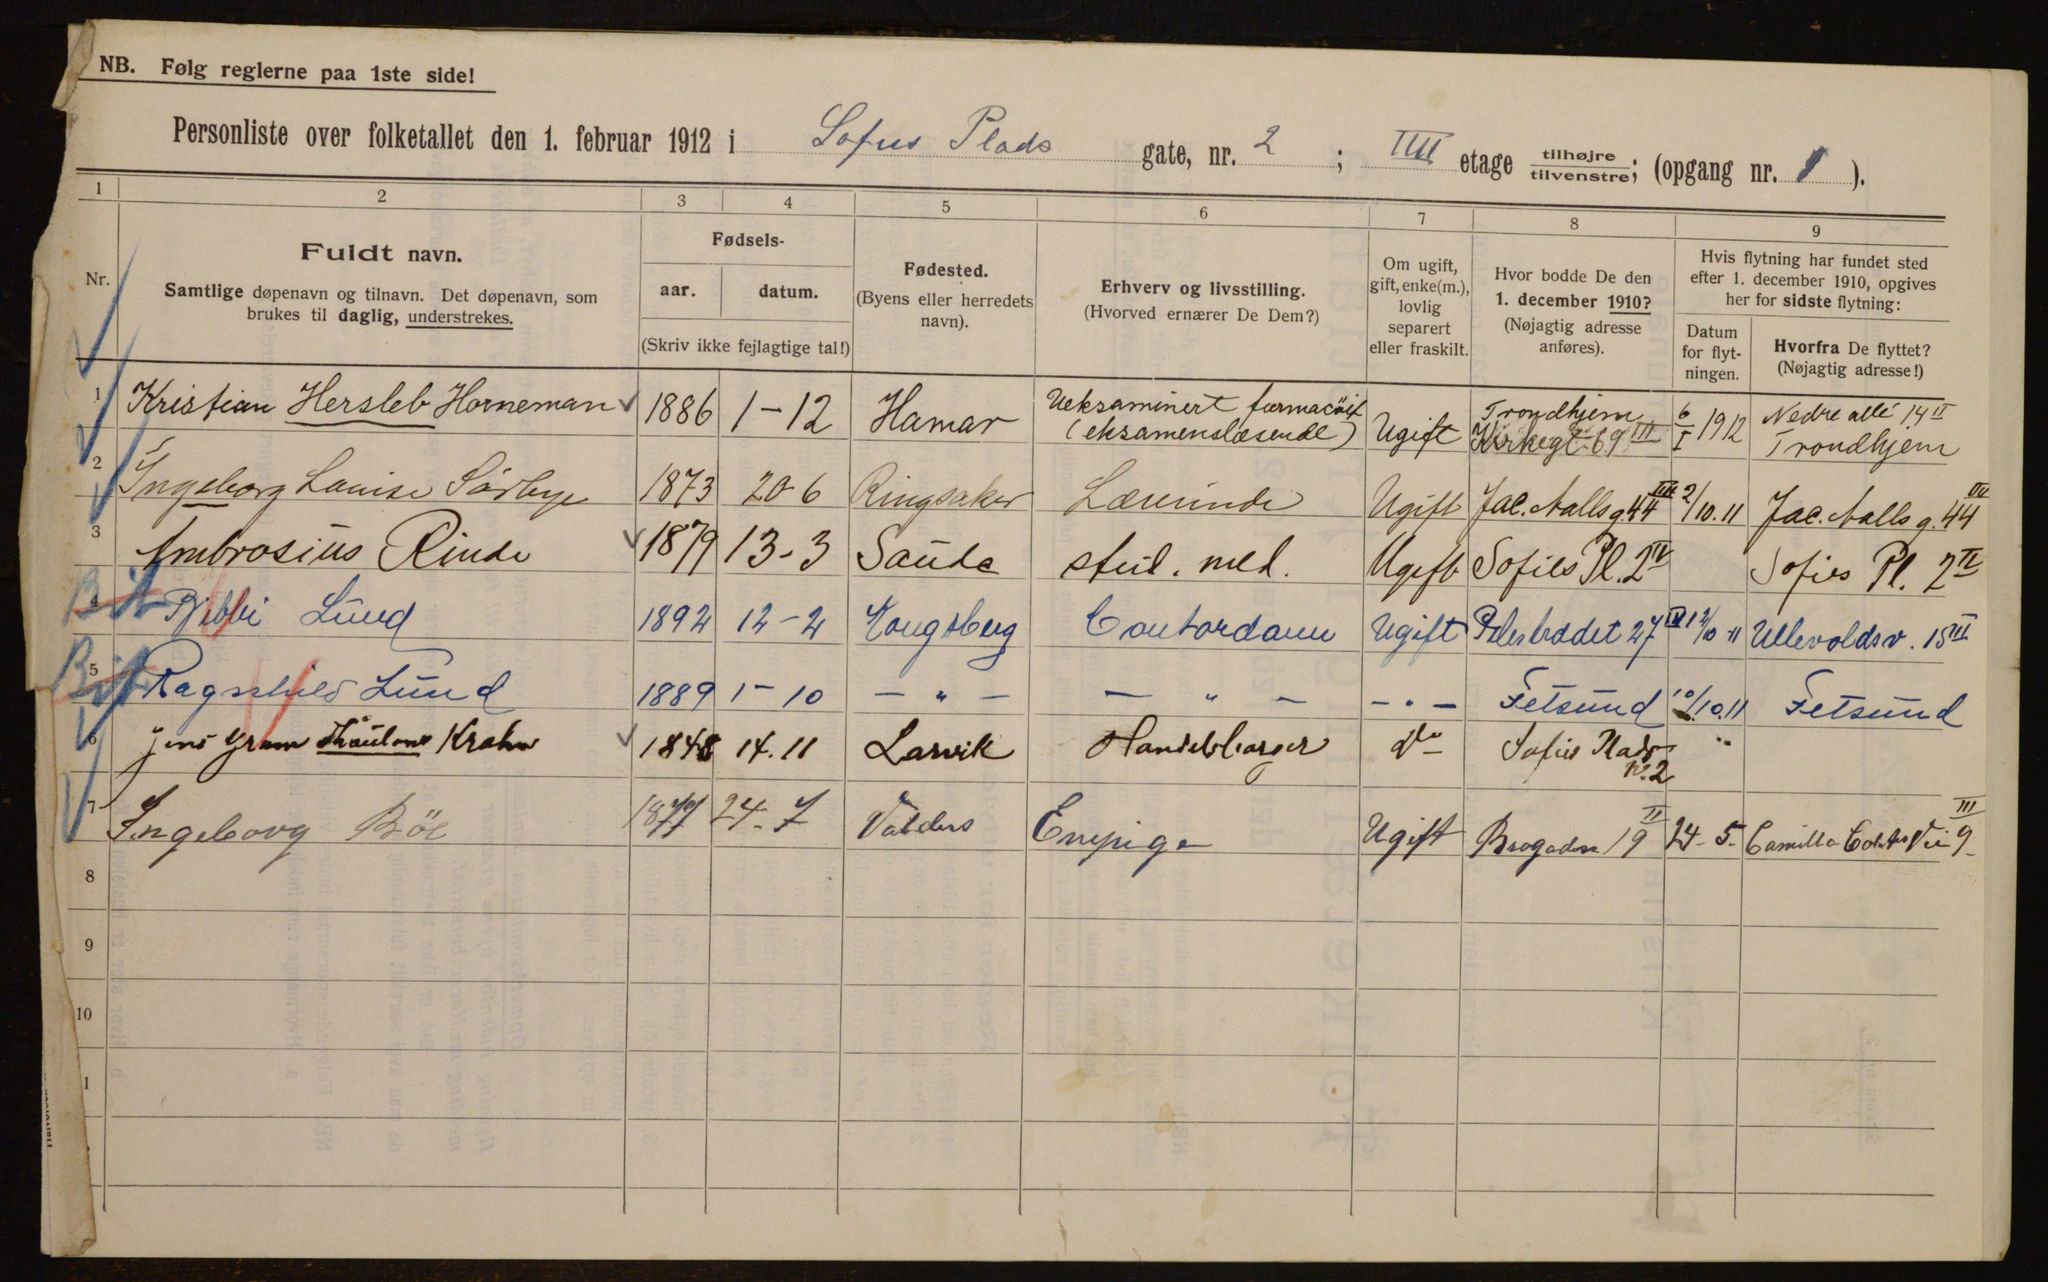 NB. Følg reglerne paa 1ste side!
Personliste over folketallet den 1. februar 1912 i Sofus Plads gate, nr. 2 ; IIII etage tilhøjre tilvenstre; (opgang nr. 1 ).
1 2 3 4 5 6 7 8 9
Nr.
Fuldt navn.
Samtlige døpenavn og tilnavn. Det døpenavn, som
brukes til daglig, understrekes.
Fødsels-
aar. datum.
(Skriv ikke fejlagtige tal!)
Fødested.
(Byens eller herredets
navn).
Erhverv og livsstilling.
(Hvorved ernærer De Dem?)
Om ugift,
gift, enke(m.),
lovlig
separert
eller fraskilt.
Hvor bodde De den
1. december 1910?
(Nøjagtig adresse
anføres).
Hvis flytning har fundet sted
efter 1. december 1910, opgives
her for sidste flytning:
Datum
for flyt-
ningen.
Hvorfra De flyttet?
(Nøjagtig adresse!)
1 Kristian Hersleb Horneman 1886 1-12 Hamar Ueksaminert farmacöit (eksamenslæsende) Ugift Trondhjem Kirkegt. 69 III 6/I 1912 Nedre allé 14 II Trondhjem
2 Ingeborg Louise Sörbye 1873 20-6 Ringsaker Lærerinde Ugift Jac. Aalls g. 44 III 2/10. 11 Jac. Aalls g. 44 III
3 Ambrosius Rinde 1879 13-3 Saude stud. med. Ugift Sofies Pl. 2 IV Sofies Pl. 2 IV
4 Bibbi Lund 1892 12-2 Kongsberg Contordame Ugift Pilestrædet 27 IV 12/10 11 Ullevoldsv. 15 III
5 Ragnhild Lund 1889 1-10 - " - - " - - " - Fetsund 10/10. 11 Fetsund
6 Jens Gram Thaulow Krohn 1848 14. 11 Larvik Handelsborger Do Sofies Plads No. 2 "
7 Ingeborg Böe 1877 24-7 Valders Enepige Ugift 19 II 24-5- Camilla Colletts Vei 9 III
8
9
10
1